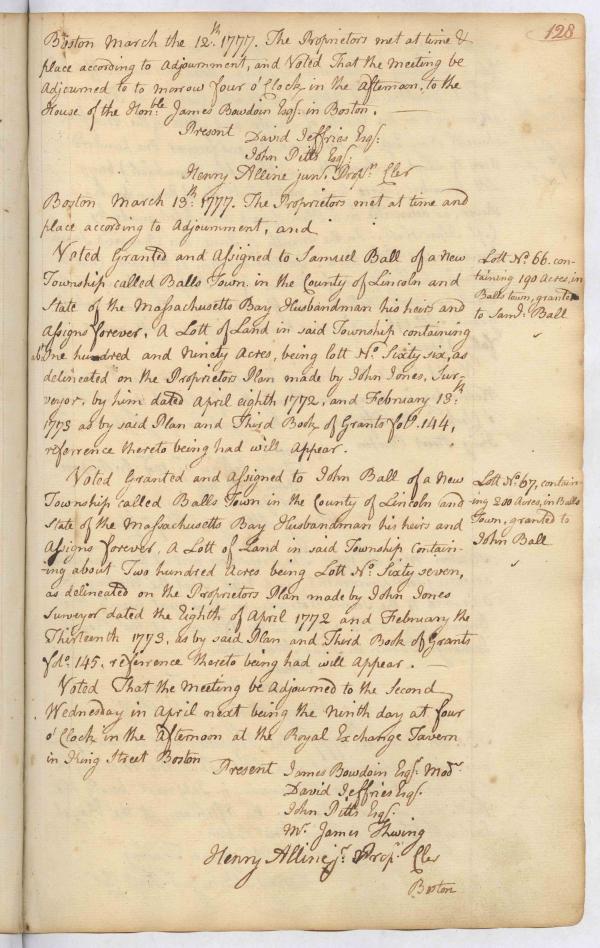 128
Boston March the 12th. 1777. The Proprietors met at time &
place according to Adjournment, and Voted That the meeting be
Adjourned to to morrow four o'Clock in the afternoon, to the
House of the Honble. James Bowdoin Esqr. in Boston.
Present David Jeffries Esqr.
John Pitts Esqr.
Henry Alline junr. Proprs. Cler
Boston March 13th. 1777. The Proprietors met at time and
place according to Adjournment, and
Voted Granted and Assigned to Samuel Ball of a new
Township called Balls Town in the County of Lincoln and
State of the Massachusetts Bay Husbandman his heirs and
Assigns forever, A Lott of Land in said Township containing
abt. One hundred and Ninety Acres, being lott No. Sixty six, as
delineated on the Proprietors Plan made by John Jones, Sur-
veyor, by him dated April eighth 1772, and February 13th.
1773 as by said Plan and Third Book of Grants folo. 144,
referrence thereto being had will Appear.
Lott No. 66. con-
taining 190 Acres, in
Balls town, granted
to Saml. Ball
Voted Granted and Assigned to John Ball of a New
Township called Balls Town in the County of Lincoln and
State of the Massachusetts Bay Husbandman his heirs and
Assigns forever, A Lott of Land in said Township Contain-
ing about Two hundred Acres being Lott No. Sixty seven,
as delineated on the Proprietors Plan made by John Jones
Surveyor dated the Eighth of April 1772 and February the
Thirteenth 1773, as by said Plan and Third Book of Grants
folo. 145, referrence thereto being had will Appear.
Lott No. 67, contain-
ing 200 Acres, in Balls
Town, granted to
John Ball
Voted That the meeting be Adjourned to the Second
Wednesday in April next being the Ninth day at four
o'Clock in the afternoon at the Royal Exchange Tavern
in King Street Boston
Present James Bowdoin Esqr. Modr.
David Jeffries Esqr.
John Pitts Esqr.
Mr. James Thwing
Henry Alline jr. Propr. Cler
Boston